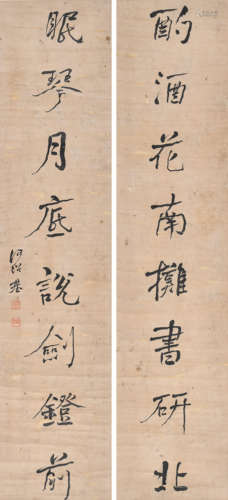 酌酒花南攤書研北
眠琴月底說劍鐙前
何紹基